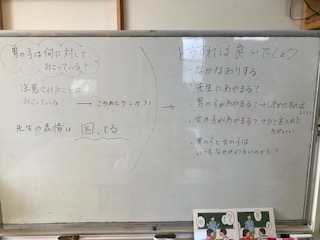 男の子は何に対して
おこっている？
注意されたことに
おこっている → このあとケンカ？
先生の表情は 困ってる
どうすれば良いでしょう
・なかなおりする
・先生にあやまる？
・男の子があやまる？→しずかにすれば
いい
・女の子があやまる？
・男の子と女の子は